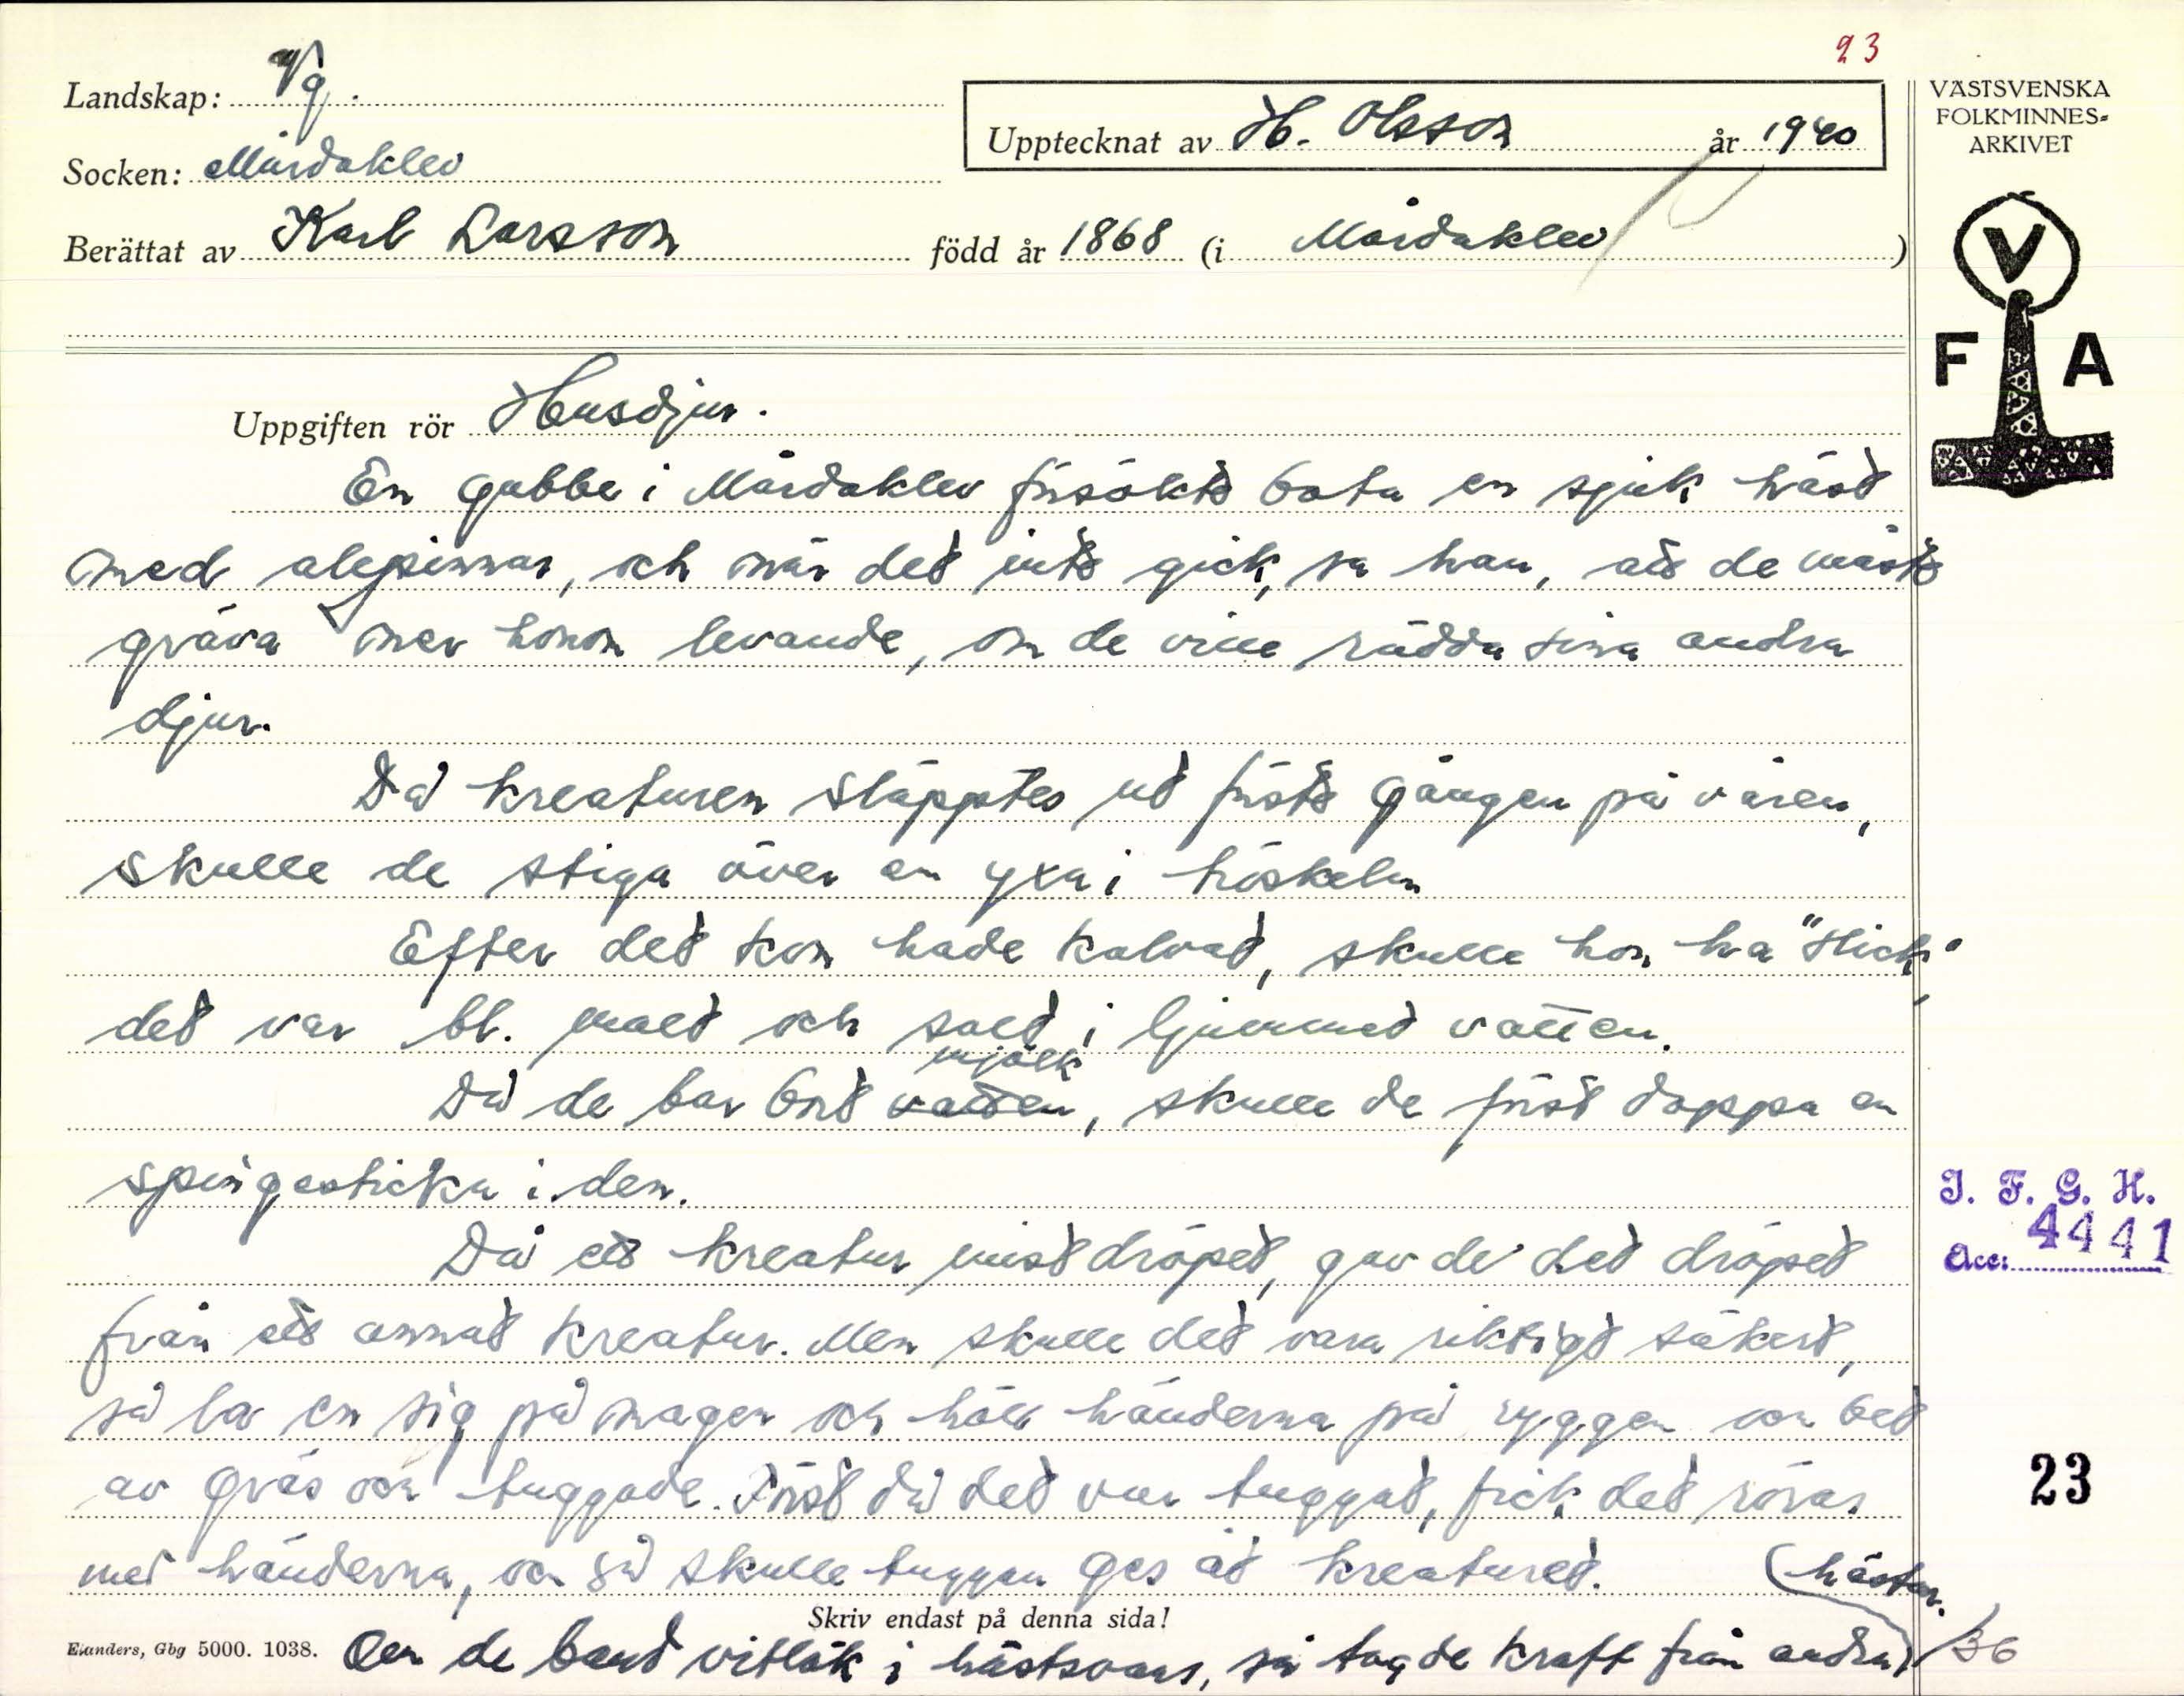 23
Landskap: Vg.
Socken: Mårdaklev
Berättat av Karl Larsson född år 1868 (i Mårdaklev)
Upptecknat av H. Olsson år 1940
VÄSTSVENSKA
FOLKMINNES-
ARKIVET
V
F A
Uppgiften rör Husdjur.
En gubbe i Mårdaklev försökte bota en sjuk häst
med alepinnar, och när det inte gick, sa han, att de måste
gräva ner honom levande, om de ville rädda sina andra
djur.
Då kreaturen släpptes ut första gången på våren,
skulle de stiga över en yxa i
Efter det kon hade kalvat, skulle hon ha "slick"
det var bl. malt och salt i ljummet vatten.
Då de bar bort vatten mjölk, skulle de först doppa en
spingesticka i den.
Då ett kreatur mist dröpet, gav de det dröpet
från ett annat kreatur. Men skulle det vara riktigt säkert,
så la en sig på magen och höll händerna på ryggen och bet
av gräs och tuggade. Först då det var tuggat, fick det röras
med händerna, och så skulle tuggan ges åt kreaturet.
(hästar.
Skriv endast på denna sida!
Elanders, Gbg 5000. 1038.
Om de band vitlök i hästsvans, så tog de kraft från andra
I. F. G. H.
Acc: 4441
23
36